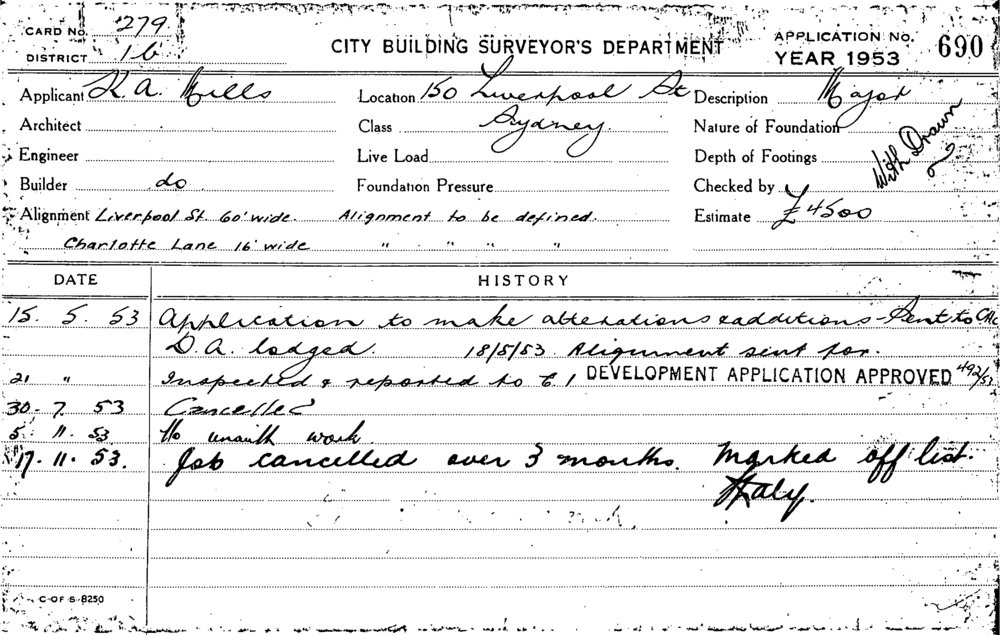 CARD No. 279
DISTRICT 16
CITY BUILDING SURVEYOR'S DEPARTMENT
APPLICATION No. 690
YEAR 1953
Applicant K. A. Mills
Location 150 Liverpool St
Description Major
Architect
Class Sydney.
Nature of Foundation
With Drawn
Engineer
Live Load
Depth of Footings
Builder do
Foundation Pressure
Checked by
Alignment Liverpool St. 60' wide. Alignment to be defined.
Estimate £4500
Charlotte Lane 16' wide " " " "
DATE HISTORY
15. 5. 53 Application to make alterations & additions - Sent to
D.A. lodged. 18/5/53 Alignment sent for.
21 " Inspected & reported to C. 1 DEVELOPMENT APPLICATION APPROVED 492/53
30. 7. 53 Cancelled
5. 11. 53 No unauth work.
17. 11. 53. Job cancelled over 3 months. Marked off list.
C-OF S-8250